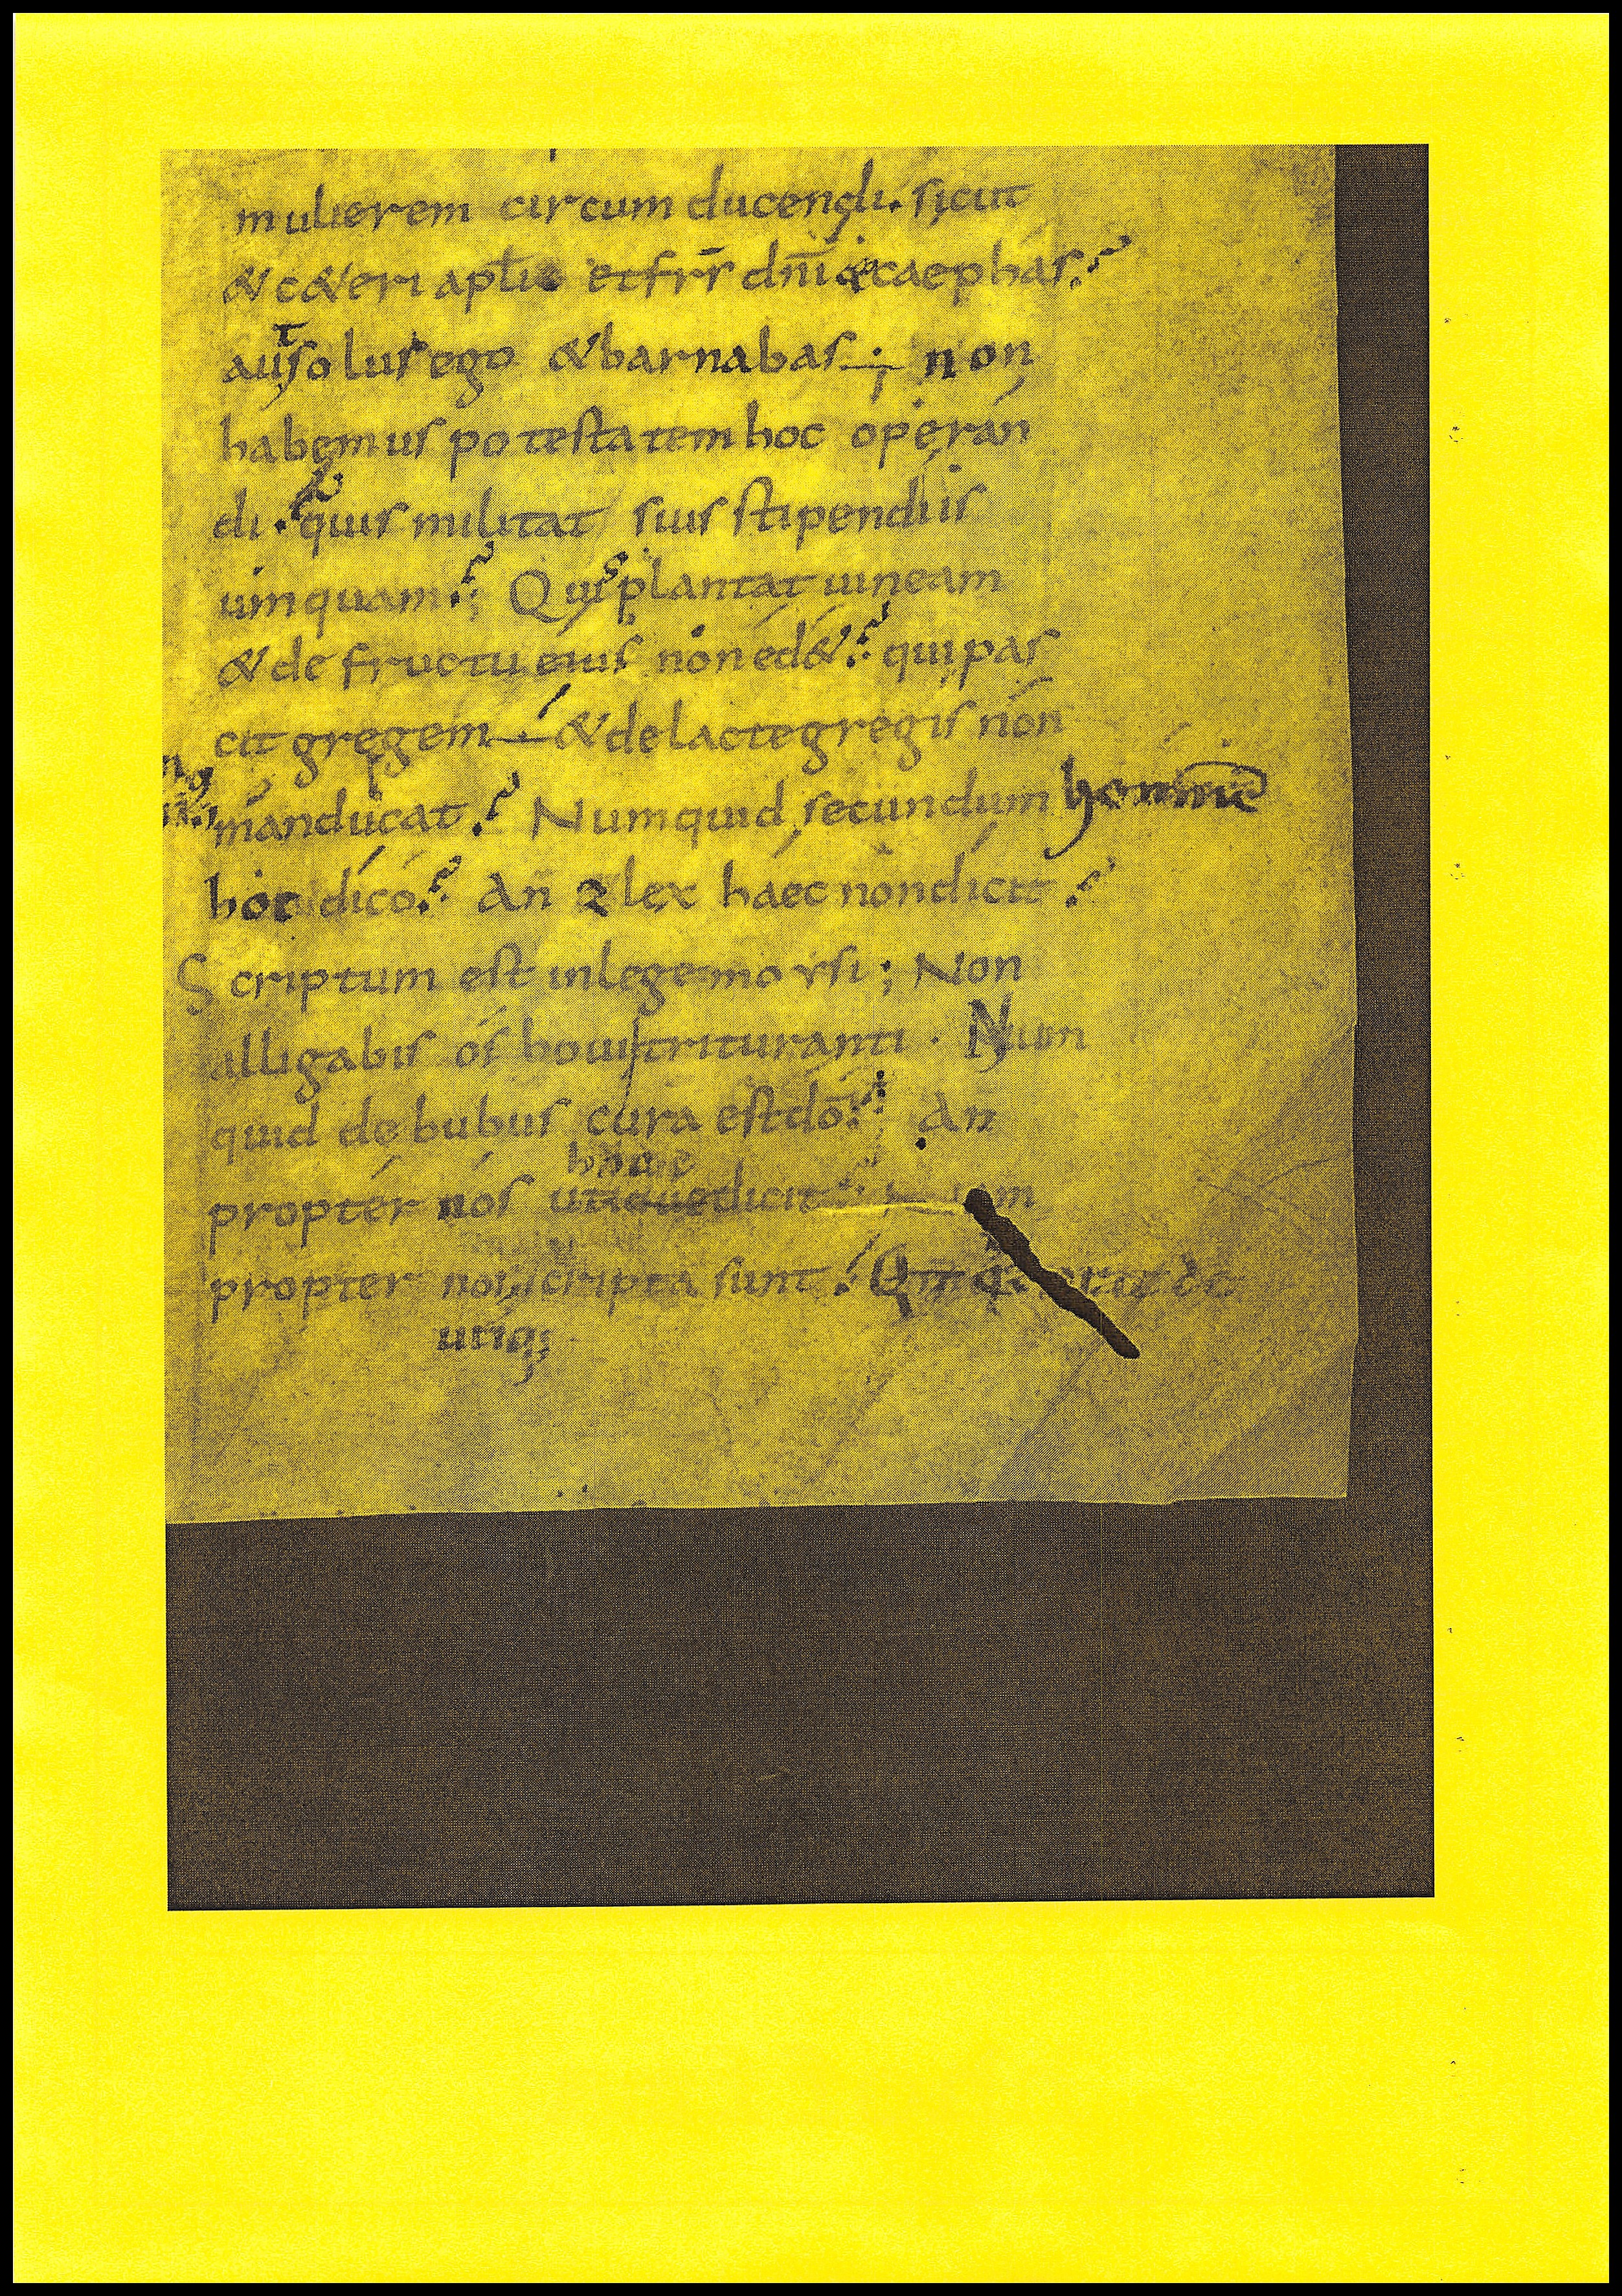 mulierem circumducendi. sicut
& c&eri apli et frs dni & caephas?
aut solus ego & barnabas; non
habemus potestatem hoc operan
di. quis militat suis stipendiis
umquam? Quis plantat uineam
& de fructu eius non ed&? qui pas
cit gregem & de lacte gregis non
manducat? Numquid secundum hominē
hoc dico? An & lex haec non dicit?
Scriptum est in lege moysi; Non
alligabis os boui trituranti. Num
quid de bubus cura est dō? An
hęc
propter nos utique dicit
propter nos scripta sunt.
utiq;